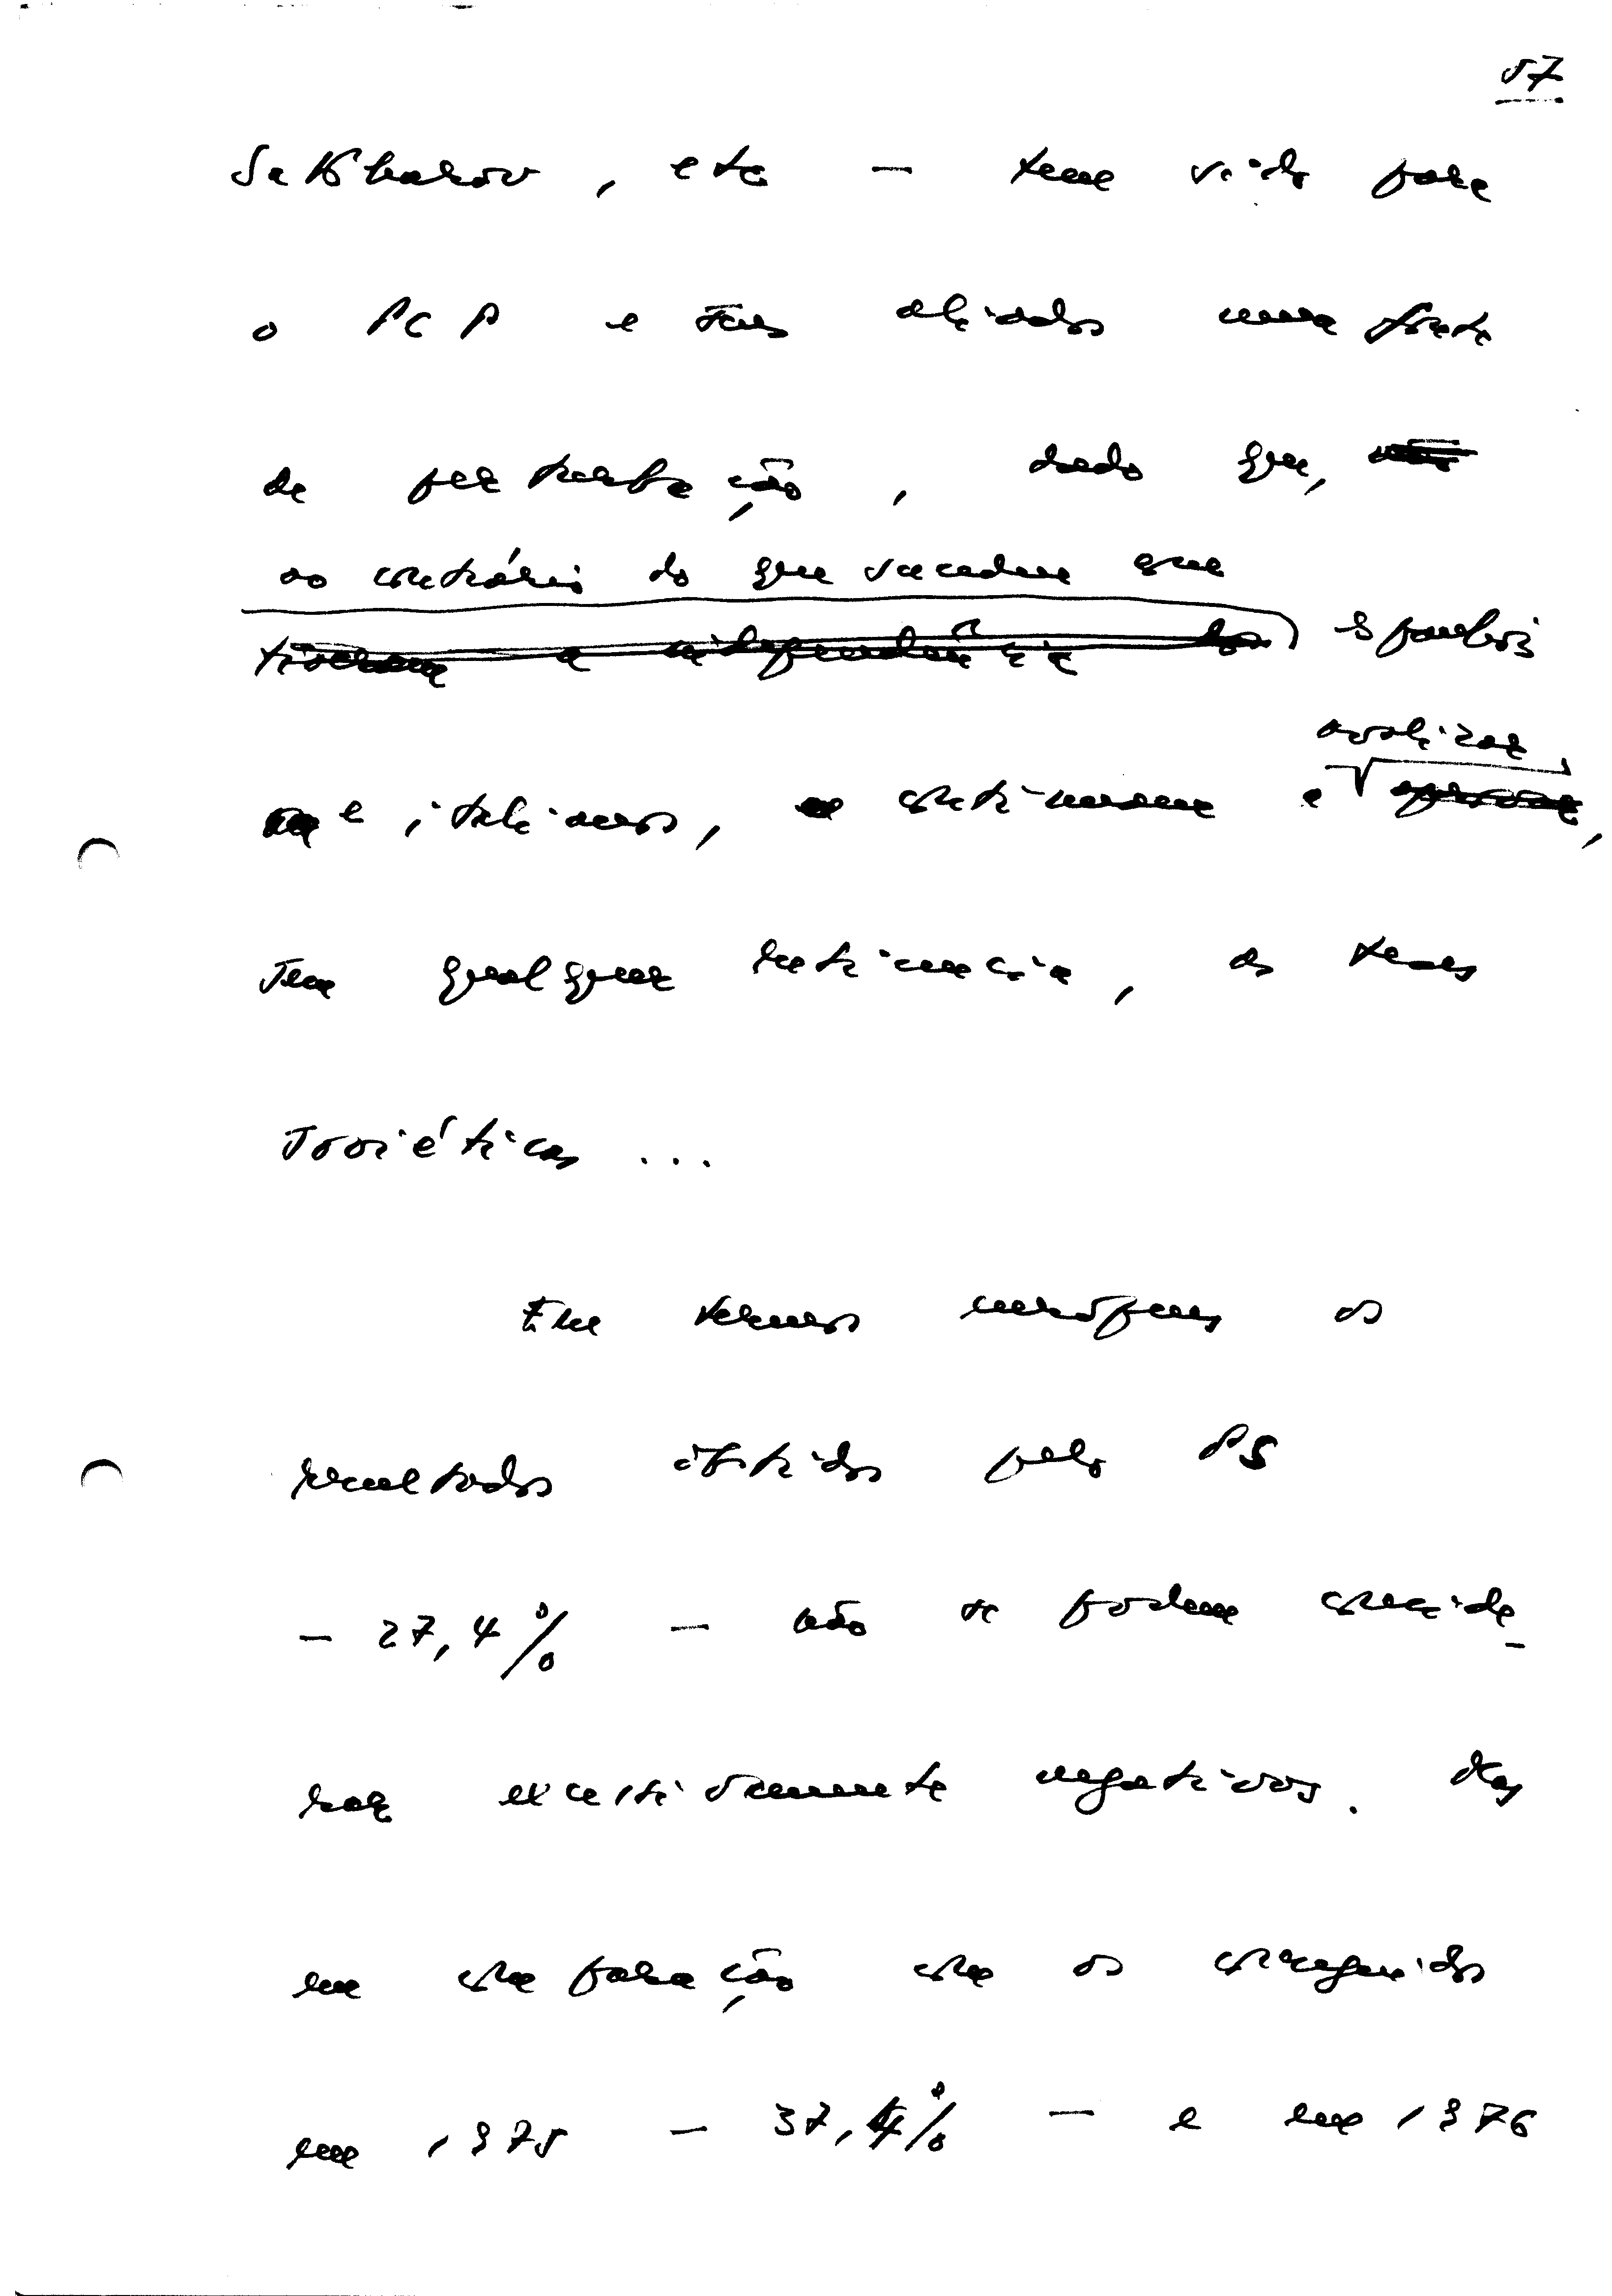 57
Sakharov, etc — tem sido para
o PCP e seus aliados uma fonte
de perturbação, dado que,
ao contrário do que sucedeu que
espanhóis
avalizar
e italianos, continuam a
sem qualquer reticência, as teses
soviéticas ...
Em termos europeus os
resultados obtidos pelo PS
— 27,4% — não se podem conside-
rar excessivamente negativos. Mas
em comparação com os conseguidos
em 1975 — 37,4% — e em 1976